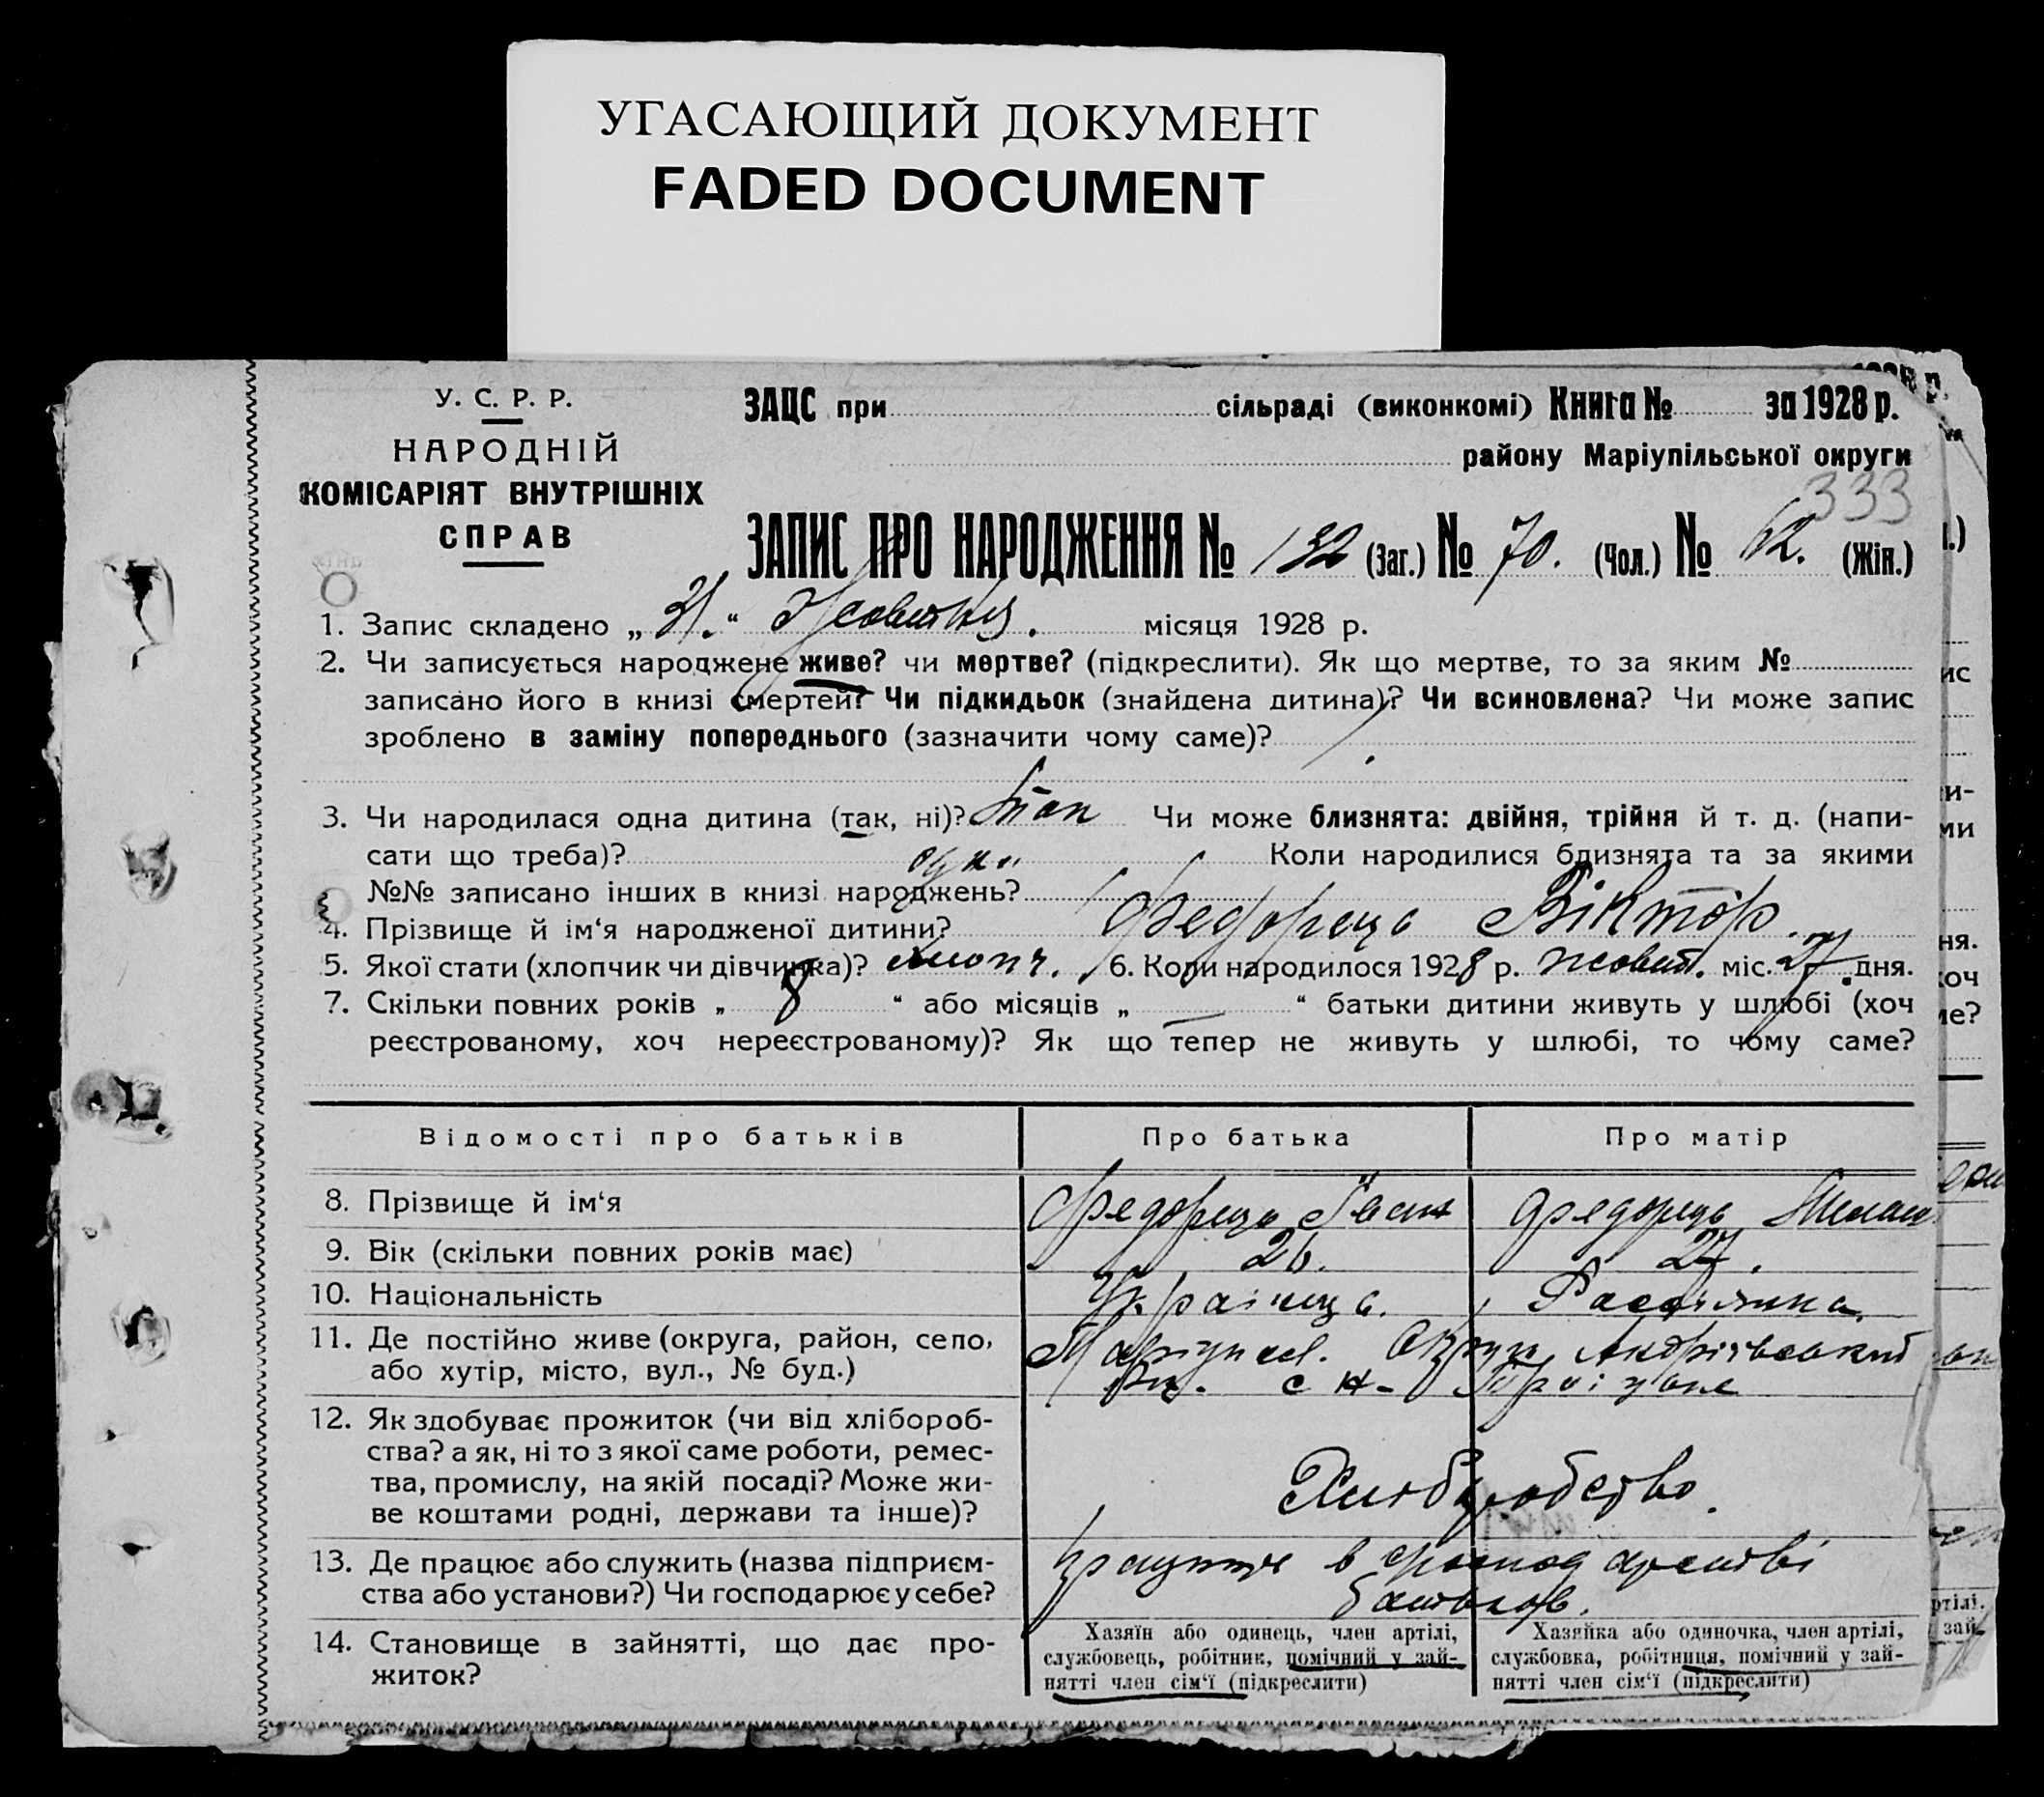 УГАСАЮЩИЙ ДОКУМЕНТ
FADED DOCUMENT
У. С. Р. Р.
НАРОДНІЙ
КОМІСАРІЯТ ВНУТРІШНІХ
СПРАВ
ЗАЦС при сільраді (виконкомі) Книга № за 1928 р.
району Маріупільської округи
333
ЗАПИС ПРО НАРОДЖЕННЯ № 132 (Заг.) № 70. (Чол.) № 62. (Жін.)
1. Запис складено „ 31. “ Жовтня. місяця 1928 р.
2. Чи записується народжене живе? чи мертве? (підкреслити). Як що мертве, то за яким №
записано його в книзі смертей? Чи підкидьок (знайдена дитина)? Чи всиновлена? Чи може запис
зроблено в заміну попереднього (зазначити чому саме)?
3. Чи народилася одна дитина (так, ні)? так Чи може близнята: двійня, трійня й т. д. (напи-
сати що треба)? Коли народилися близнята та за якими
№№ записано інших в книзі народжень?
4. Прізвище й ім‘я народженої дитини? Федорець Віктор.
5. Якої стати (хлопчик чи дівчинка)? хлопч. 6. Коли народилося 1928 р. жовт. міс. 27 дня.
7. Скільки повних років „ 8 “ або місяців „ — “ батьки дитини живуть у шлюбі (хоч
реєстрованому, хоч нереєстрованому)? Як що тепер не живуть у шлюбі, то чому саме?
Відомості про батьків Про батька Про матір
8. Прізвище й ім‘я Федорець Іван Федорець
9. Вік (скільки повних років має) 26. 27.
10. Національність Українець.
11. Де постійно живе (округа, район, село, Маріупіл. Округи Андріївський
або хутір, місто, вул., № буд.) с Н-
12. Як здобуває прожиток (чи від хлібороб-
ства? а як, ні то з якої саме роботи, ремес-
тва, промислу, на якій посаді? Може жи-
ве коштами родні, держави та інше)?
Хліборобство.
13. Де працює або служить (назва підприєм- працює в господарстві
ства або установи?) Чи господарює у себе? батьков.
14. Становище в зайнятті, що дає про-
житок?
Хазяїн або одинець, член артілі,
службовець, робітник, помічний у зай-
нятті член сім‘ї (підкреслити)
Хазяйка або одиночка, член артілі,
службовка, робітниця, помічний у зай-
нятті член сім‘ї (підкреслити)